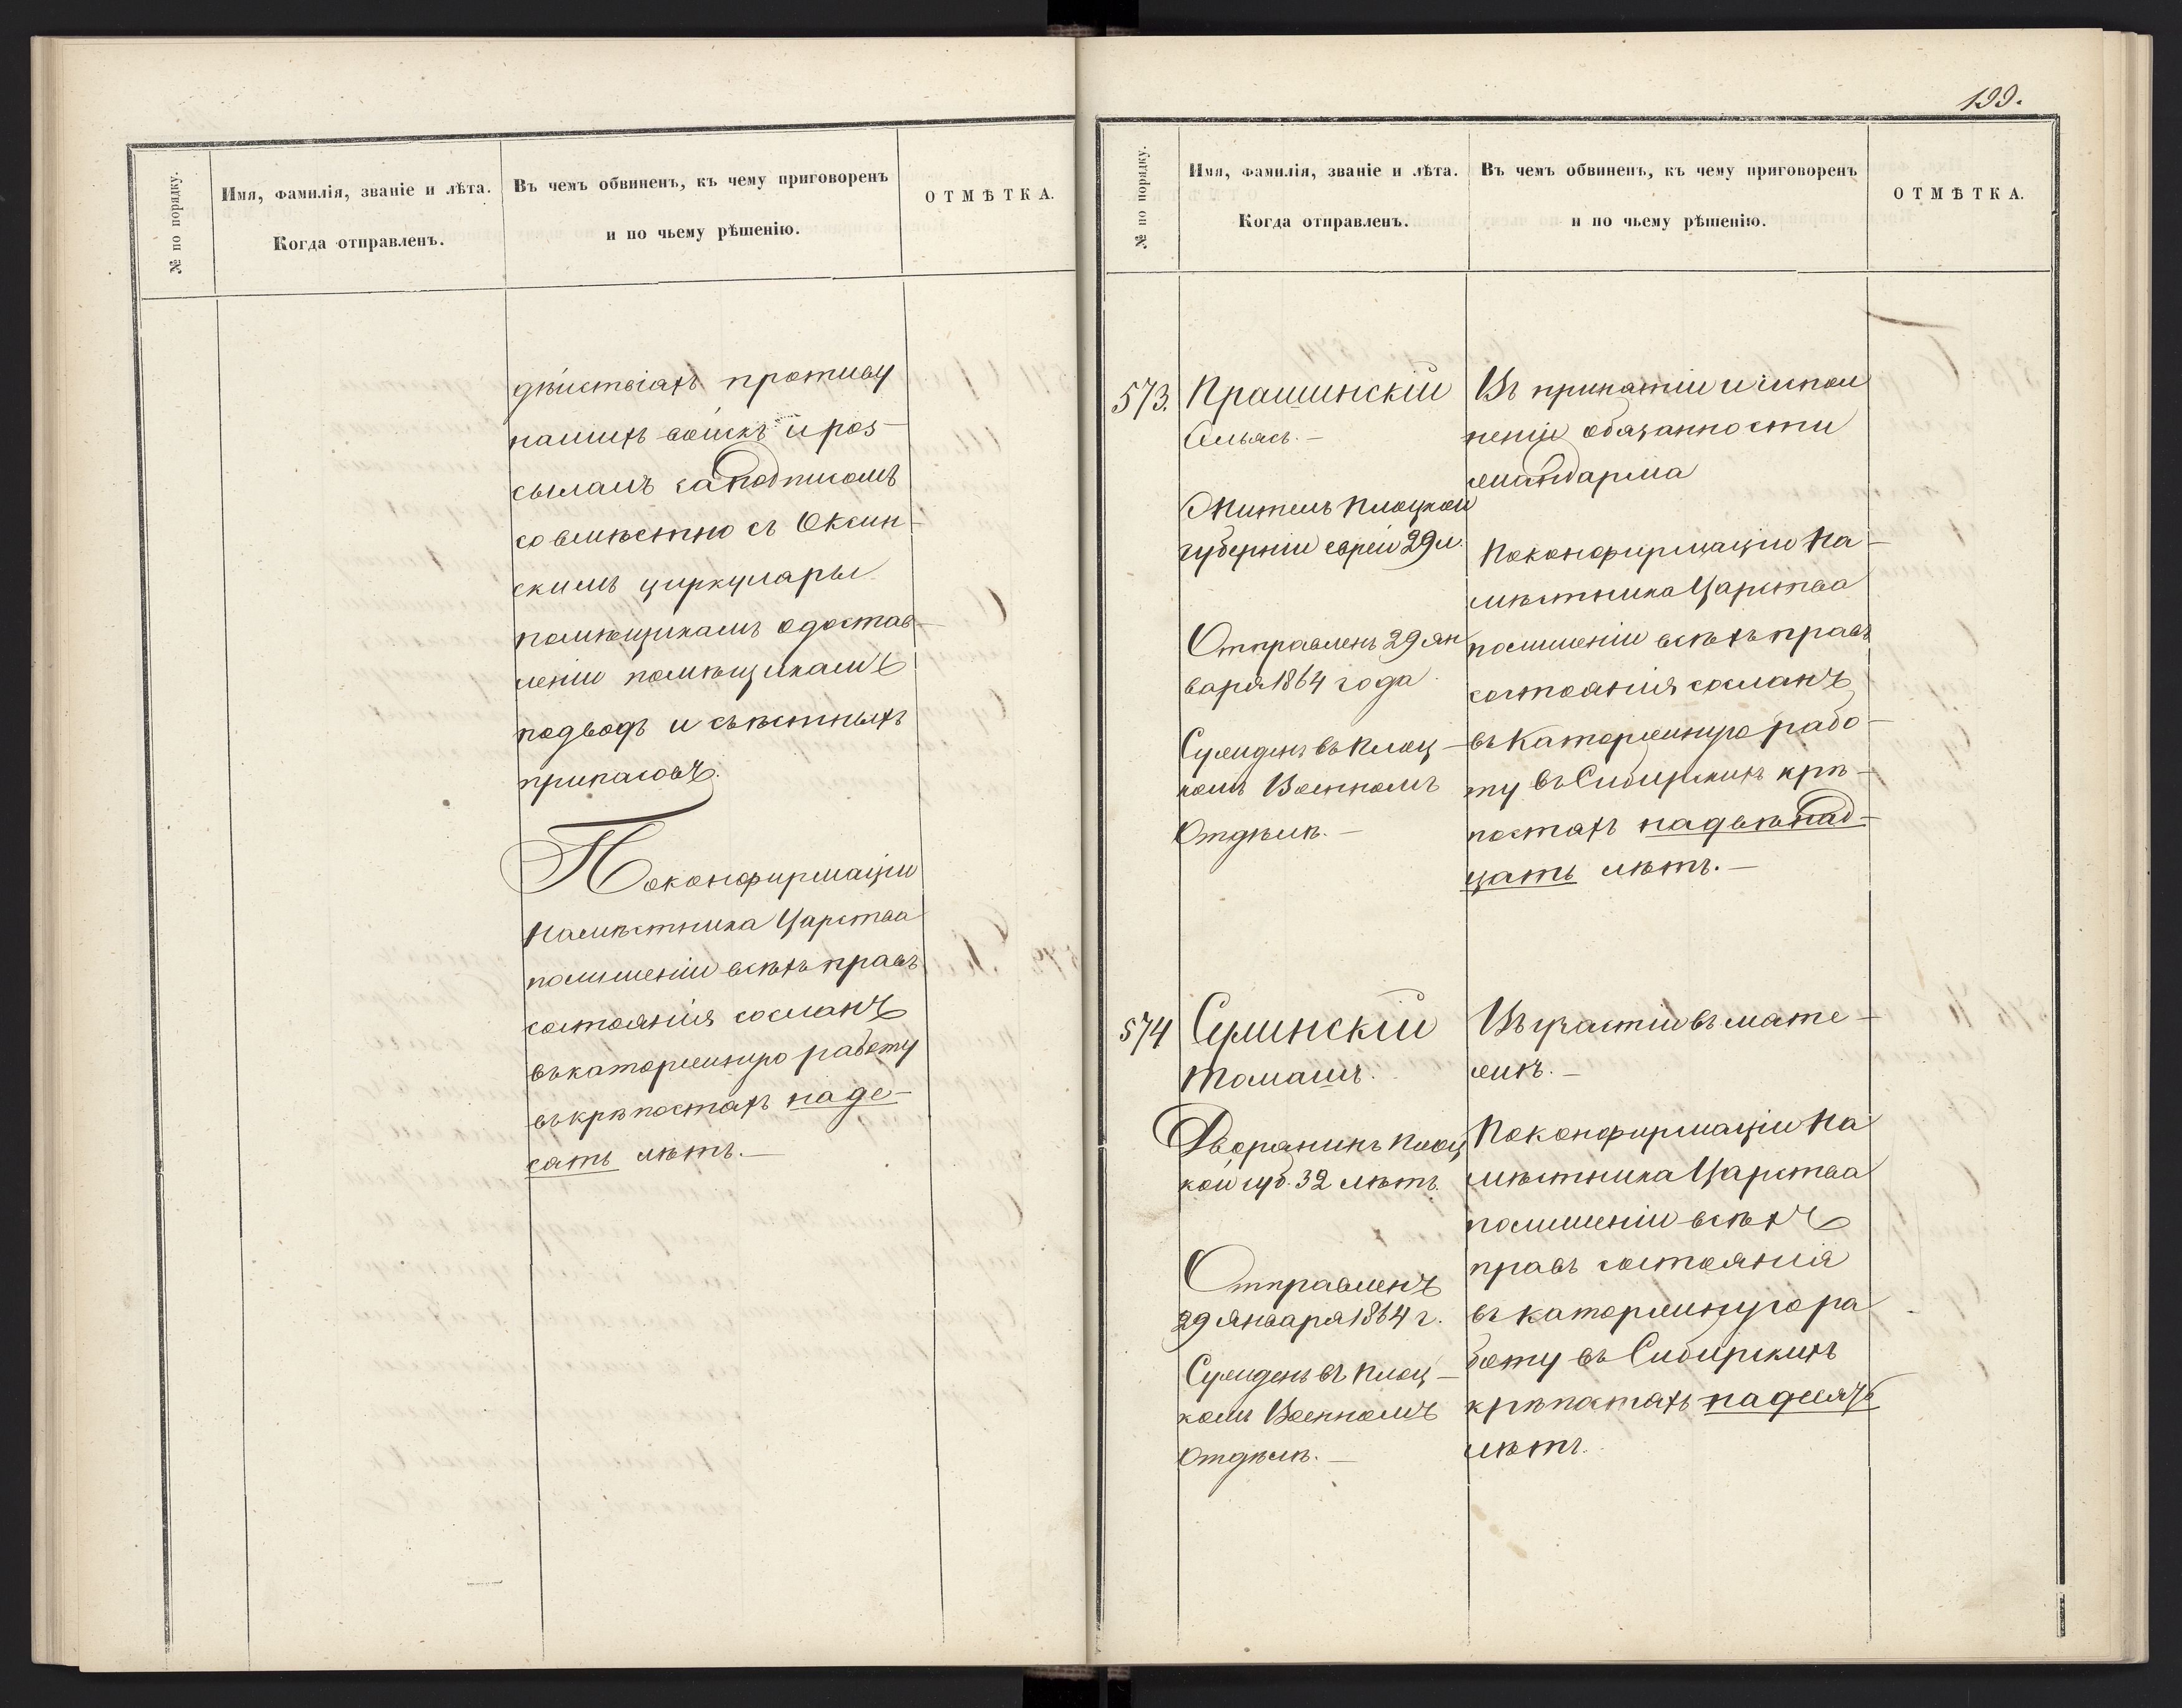 № по порядку.
Имя, фамилія, званіе и лѣта.
Когда отправленъ.
Въ чемъ обвиненъ, къ чему приговоренъ
и по чьему рѣшенію.
ОТМѢТКА.
дѣйствіяхъ противу
нашихъ войскъ и роз-
сыламъ за подписомъ
совмѣстно съ Оксин-
скимъ циркуляры
помѣщикамъ о достав-
леніи помѣщиками
подводъ и съѣстныхъ
припасовъ.
По конфирмаціи
Намѣстника Царства
по лишеніи всѣхъ правъ
состоянія сосланъ
въ каторжную работу
въ крѣпостяхъ на де-
сять лѣтъ. —
199.
№ по порядку.
Имя, фамилія, званіе и лѣта.
Когда отправленъ.
Въ чемъ обвиненъ, къ чему приговоренъ
и по чьему рѣшенію.
ОТМѢТКА.
573.
Прашинскій
Ельясъ. —
Житель Плоцкой
губерніи еврей 29 л.
Отправленъ 29 ян
варя 1864 года.
Сужденъ въ Плоц-
комъ Военномъ
Отдѣлѣ. —
Въ принятіи и испол
неніи обязанности
жандарма
По конфирмаціи На-
мѣстника Царства
по лишеніи всѣхъ правъ
состоянія сосланъ
въ Каторжную рабо-
ту въ Сибирскихъ крѣ-
постяхъ на двѣнад-
цать лѣтъ. —
574
Сулинскій
Томашъ.
Дворянинъ Плоц
кой губ. 32 лѣтъ.
Отправленъ
29 Января 1864 г.
Сужденъ въ Плоц-
комъ Военномъ
Отдѣлѣ. —
Въ участіи въ мяте-
жѣ. —
По конфирмаціи На
мѣстника Царства
по лишеніи всѣхъ
правъ состоянія
въ каторжную ра
боту въ Сибирскихъ
крѣпостяхъ на десять
лѣтъ.